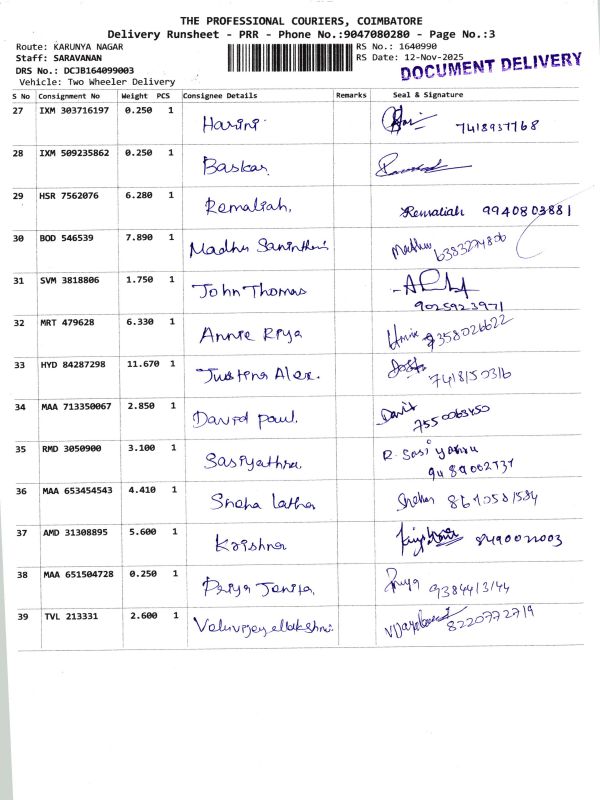 THE PROFESSIONAL COURIERS, COIMBATORE
Delivery Runsheet - PRR - Phone No.:9047080280 - Page No.:3
Route: KARUNYA NAGAR RS No.: 1640990
Staff: SARAVANAN RS Date: 12-Nov-2025
DRS No.: DCJB164099003 DOCUMENT DELIVERY
Vehicle: Two Wheeler Delivery
S No Consignment No Weight PCS Consignee Details Remarks Seal & Signature
27 IXM 303716197 0.250 1 Harini 7418937768
28 IXM 509235862 0.250 1 Baskar
29 HSR 7562076 6.280 1 Remaliah. Remaliah 9940803881
30 BOD 546539 7.890 1 Madhu Madhu
31 SVM 3818806 1.750 1 John Thomas 9025923971
32 MRT 479628 6.330 1 Annie Riya
33 HYD 84287298 11.670 1 Alex.
34 MAA 713350067 2.850 1 David paul. David
35 RMD 3050900 3.100 1 Sasiyathra R. Sasi
36 MAA 653454543 4.410 1 Sneha Latha
37 AMD 31308895 5.600 1 Krishna
38 MAA 651504728 0.250 1 Priya Jenita. Priya
39 TVL 213331 2.600 1 8220772719